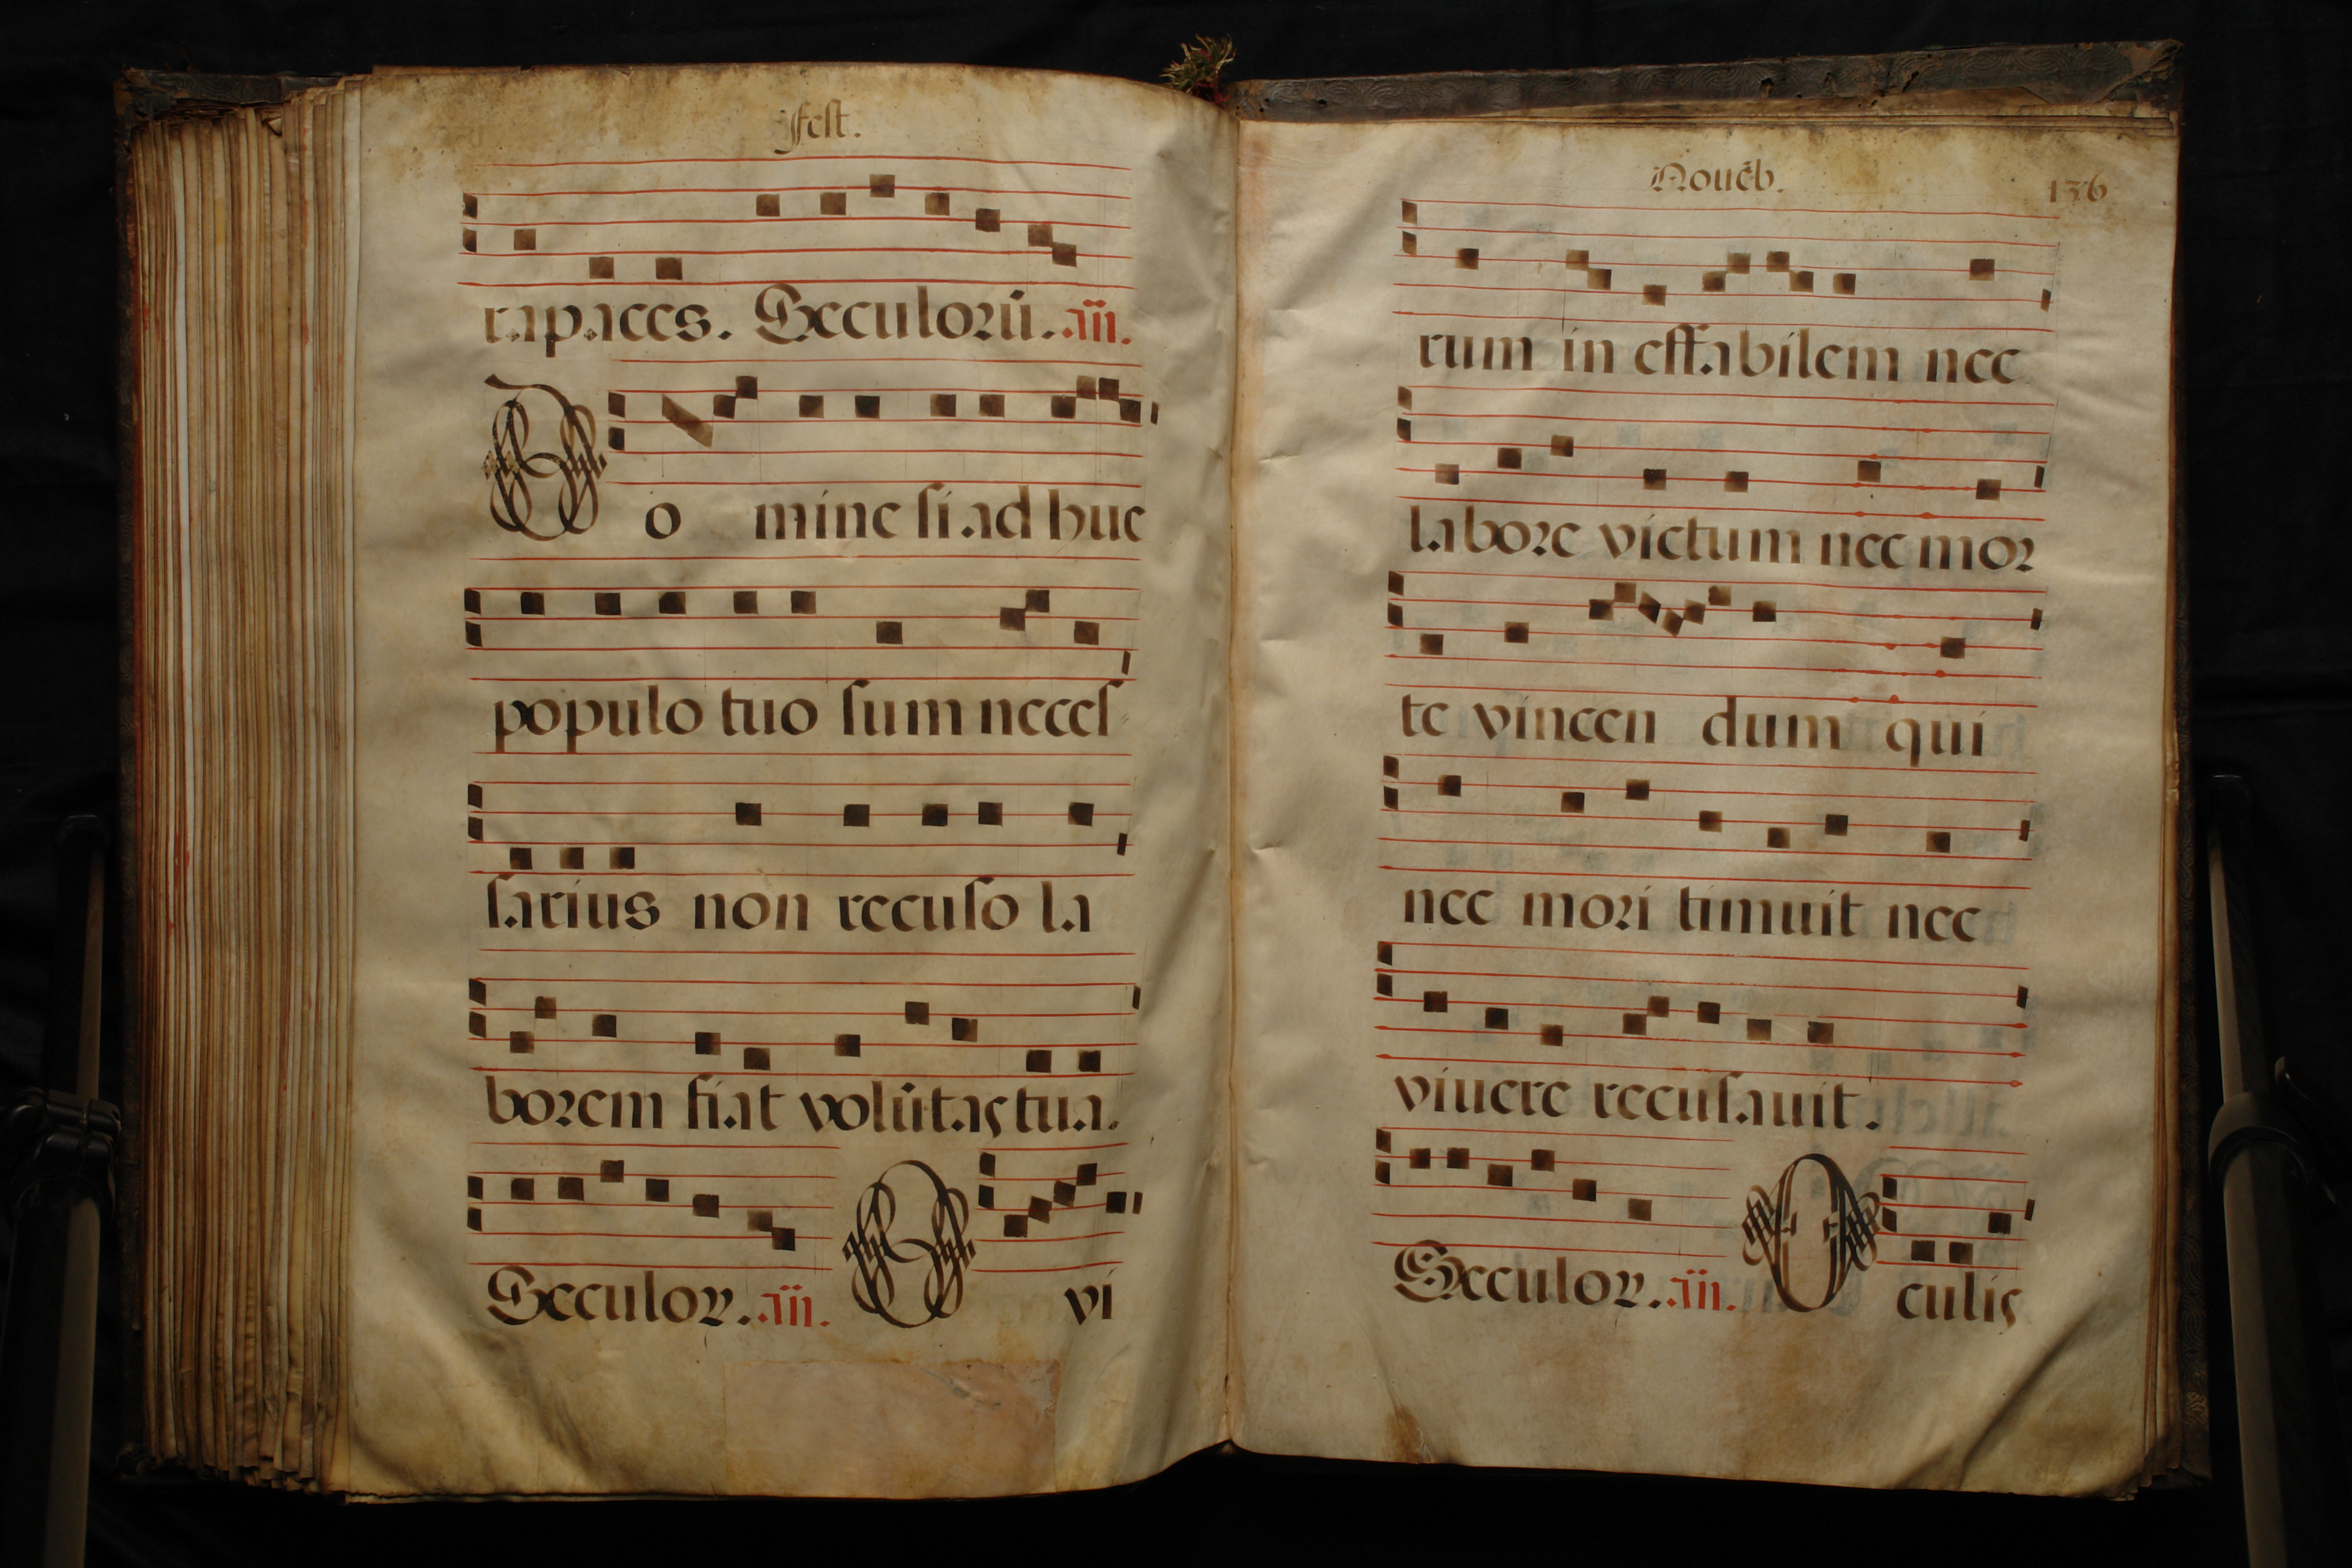 Fest.
rapaces. Seculorū. añ.
Do mine si ad huc
populo tuo sum neces
sarius non recuso la
borem fiat volūtas tua.
Seculor. añ. O vi
Nouēb. 136
rum in effabilem nec
labore victum nec mor
te vincen dum qui
nec mori timuit nec
viuere recusauit.
Seculor. añ. O culis